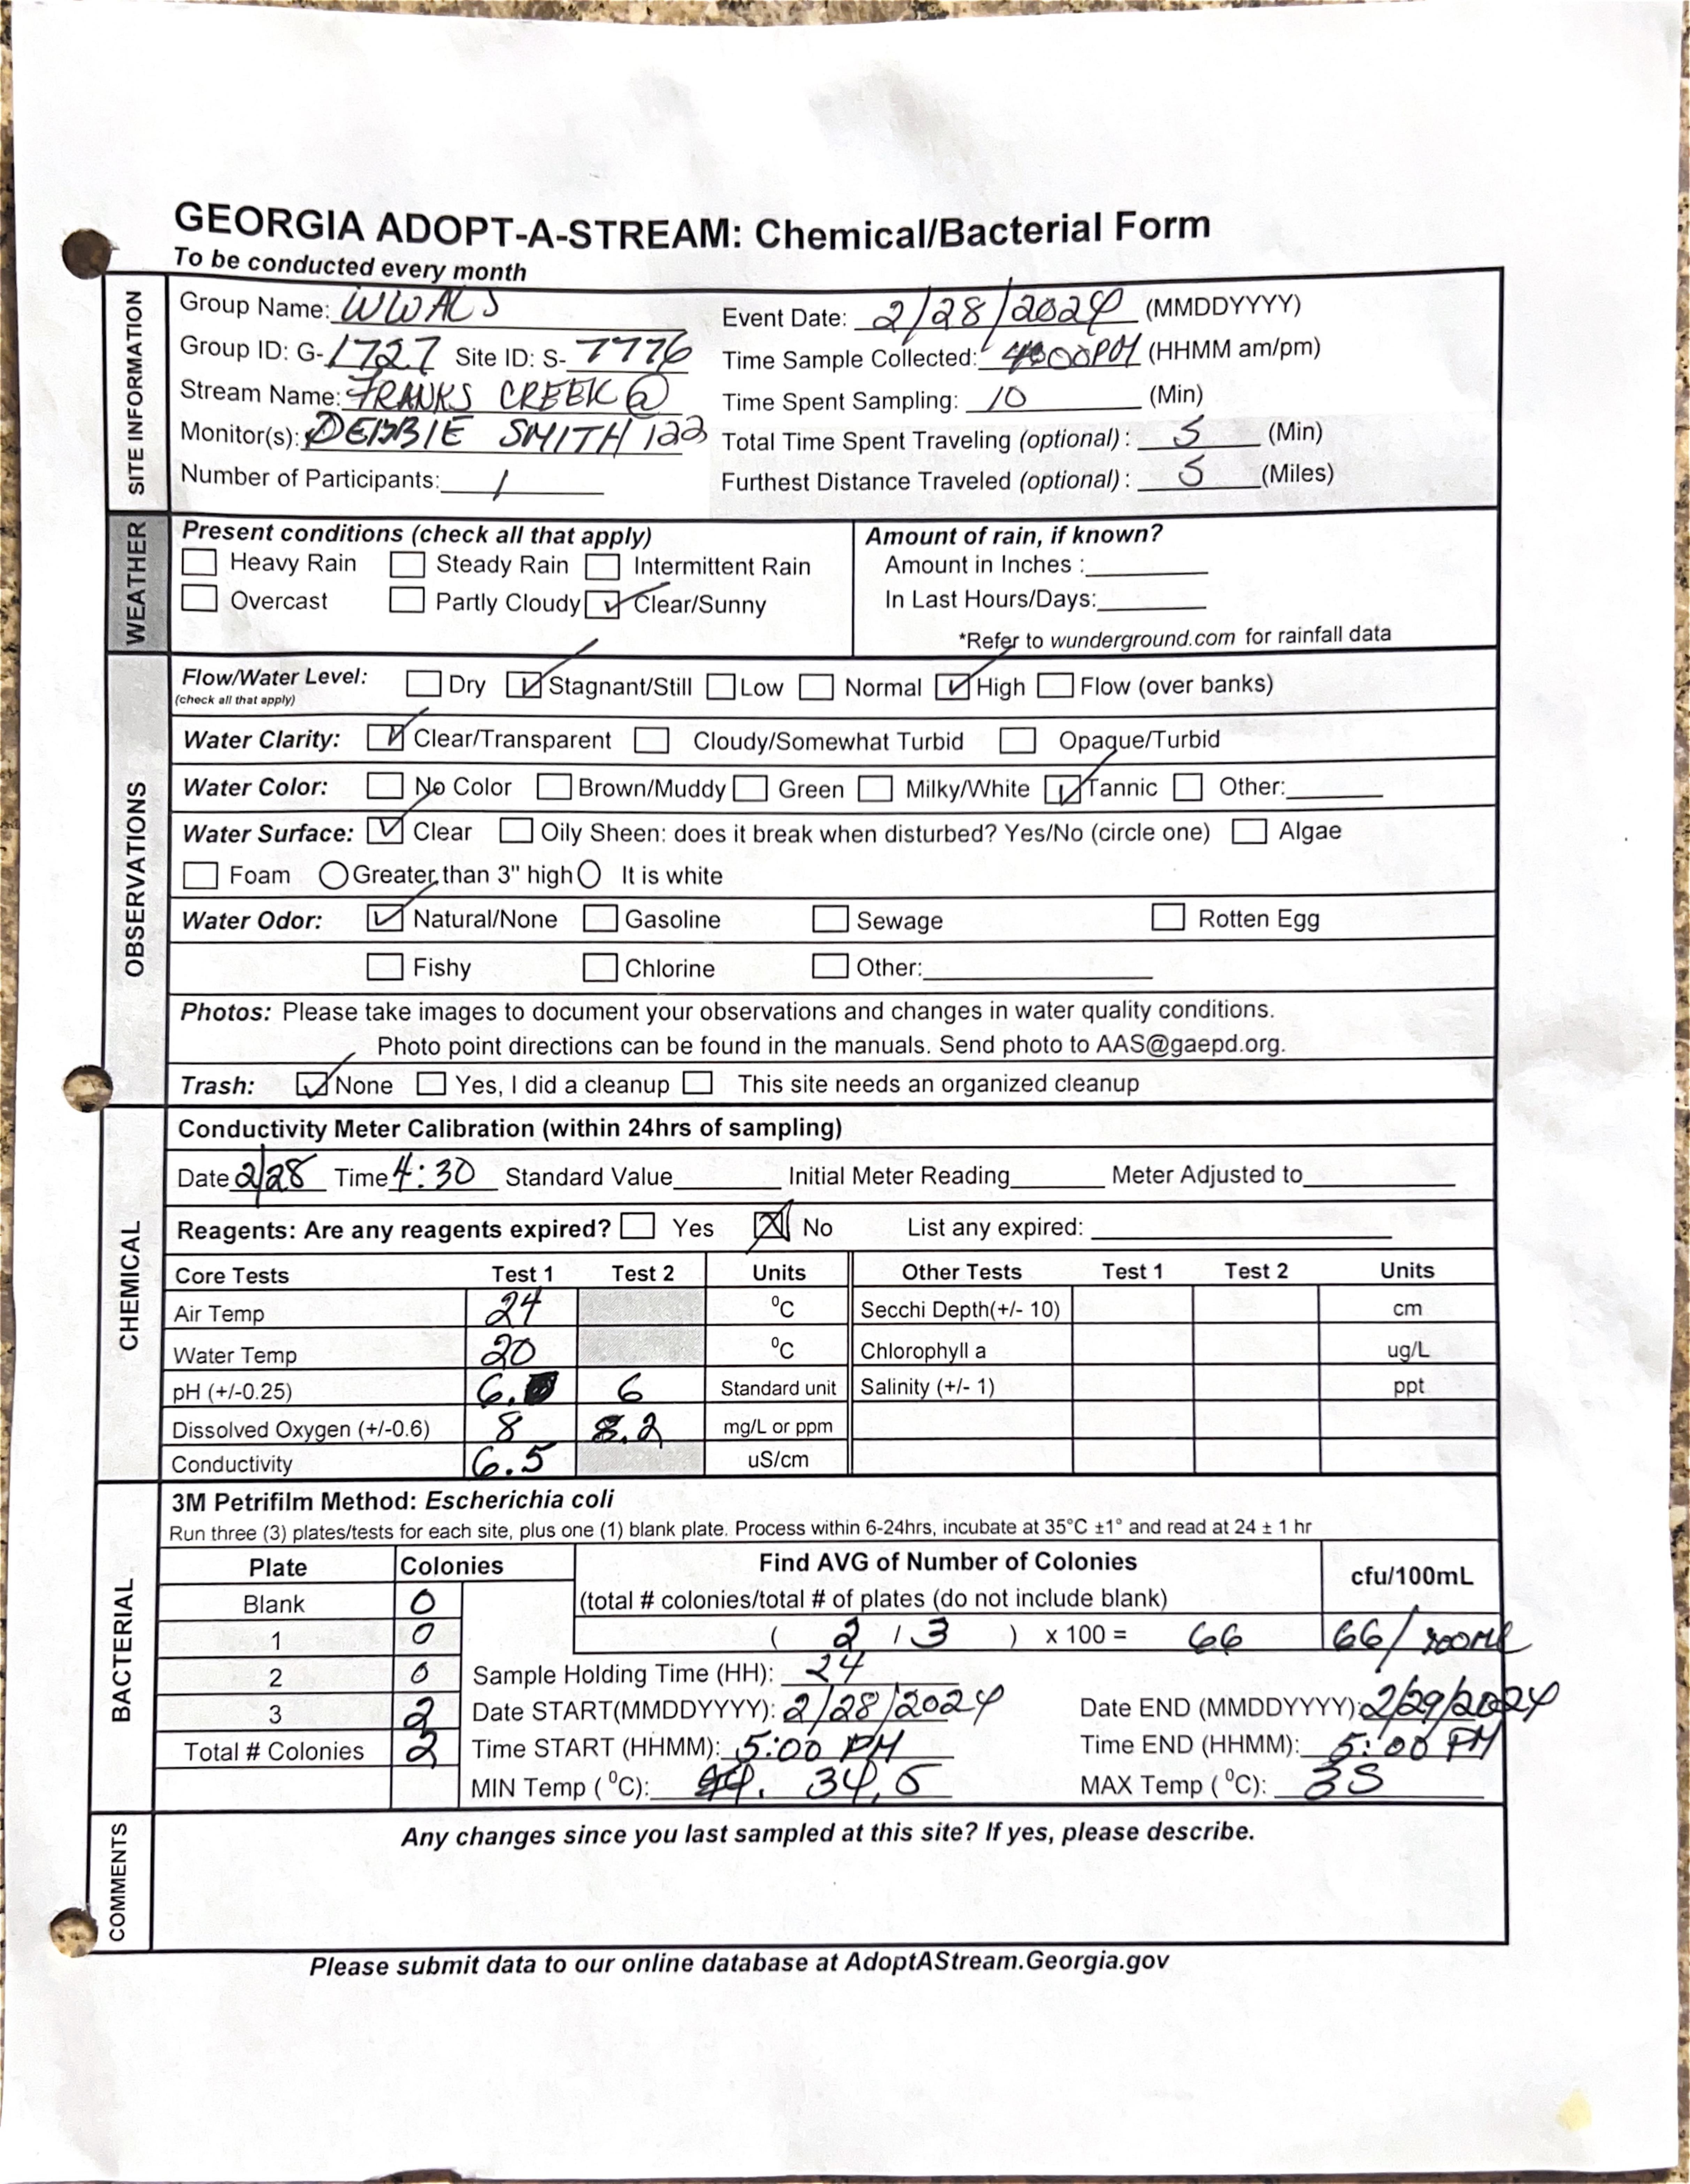 GEORGIA ADOPT-A-STREAM: Chemical/Bacterial Form
To be conducted every month
SITE INFORMATION
Group Name: WWALS
Event Date: 2/28/2024 (MMDDYYYY)
Group ID: G-1727 Site ID: S-7776
Time Sample Collected: 4:00PM (HHMM am/pm)
Stream Name: FRANKS CREEK @
Time Spent Sampling: 10 (Min)
Monitor(s): DEBBIE SMITH 122
Total Time Spent Traveling (optional): 5 (Min)
Number of Participants: 1
Furthest Distance Traveled (optional): 5 (Miles)
WEATHER
Present conditions (check all that apply)
Heavy Rain Steady Rain Intermittent Rain
Overcast Partly Cloudy Clear/Sunny
Amount of rain, if known?
Amount in Inches :
In Last Hours/Days:
*Refer to wunderground.com for rainfall data
OBSERVATIONS
Flow/Water Level: Dry Stagnant/Still Low Normal High Flow (over banks)
(check all that apply)
Water Clarity: Clear/Transparent Cloudy/Somewhat Turbid Opaque/Turbid
Water Color: No Color Brown/Muddy Green Milky/White Tannic Other:
Water Surface: Clear Oily Sheen: does it break when disturbed? Yes/No (circle one) Algae
Foam Greater than 3" high It is white
Water Odor: Natural/None Gasoline Sewage Rotten Egg
Fishy Chlorine Other:
Photos: Please take images to document your observations and changes in water quality conditions.
Photo point directions can be found in the manuals. Send photo to AAS@gaepd.org.
Trash: None Yes, I did a cleanup This site needs an organized cleanup
CHEMICAL
Conductivity Meter Calibration (within 24hrs of sampling)
Date 2/28 Time 4:30 Standard Value Initial Meter Reading Meter Adjusted to
Reagents: Are any reagents expired? Yes No List any expired:
Core Tests Test 1 Test 2 Units Other Tests Test 1 Test 2 Units
Air Temp 24 °C Secchi Depth(+/- 10) cm
Water Temp 20 °C Chlorophyll a ug/L
pH (+/-0.25) 6. 6 Standard unit Salinity (+/- 1) ppt
Dissolved Oxygen (+/-0.6) 8 8.2 mg/L or ppm
Conductivity 6.5 uS/cm
BACTERIAL
3M Petrifilm Method: Escherichia coli
Run three (3) plates/tests for each site, plus one (1) blank plate. Process within 6-24hrs, incubate at 35°C ±1° and read at 24 ± 1 hr
Plate Colonies Find AVG of Number of Colonies cfu/100mL
Blank 0 (total # colonies/total # of plates (do not include blank)
1 0 ( 2 / 3 ) x 100 = 66 66/100ML
2 0 Sample Holding Time (HH): 24
3 2 Date START(MMDDYYYY): 2/28/2024 Date END (MMDDYYYY): 2/29/2024
Total # Colonies 2 Time START (HHMM): 5:00 PM Time END (HHMM): 5:00 PM
MIN Temp (°C): 34.5 MAX Temp (°C): 35
COMMENTS
Any changes since you last sampled at this site? If yes, please describe.
Please submit data to our online database at AdoptAStream.Georgia.gov